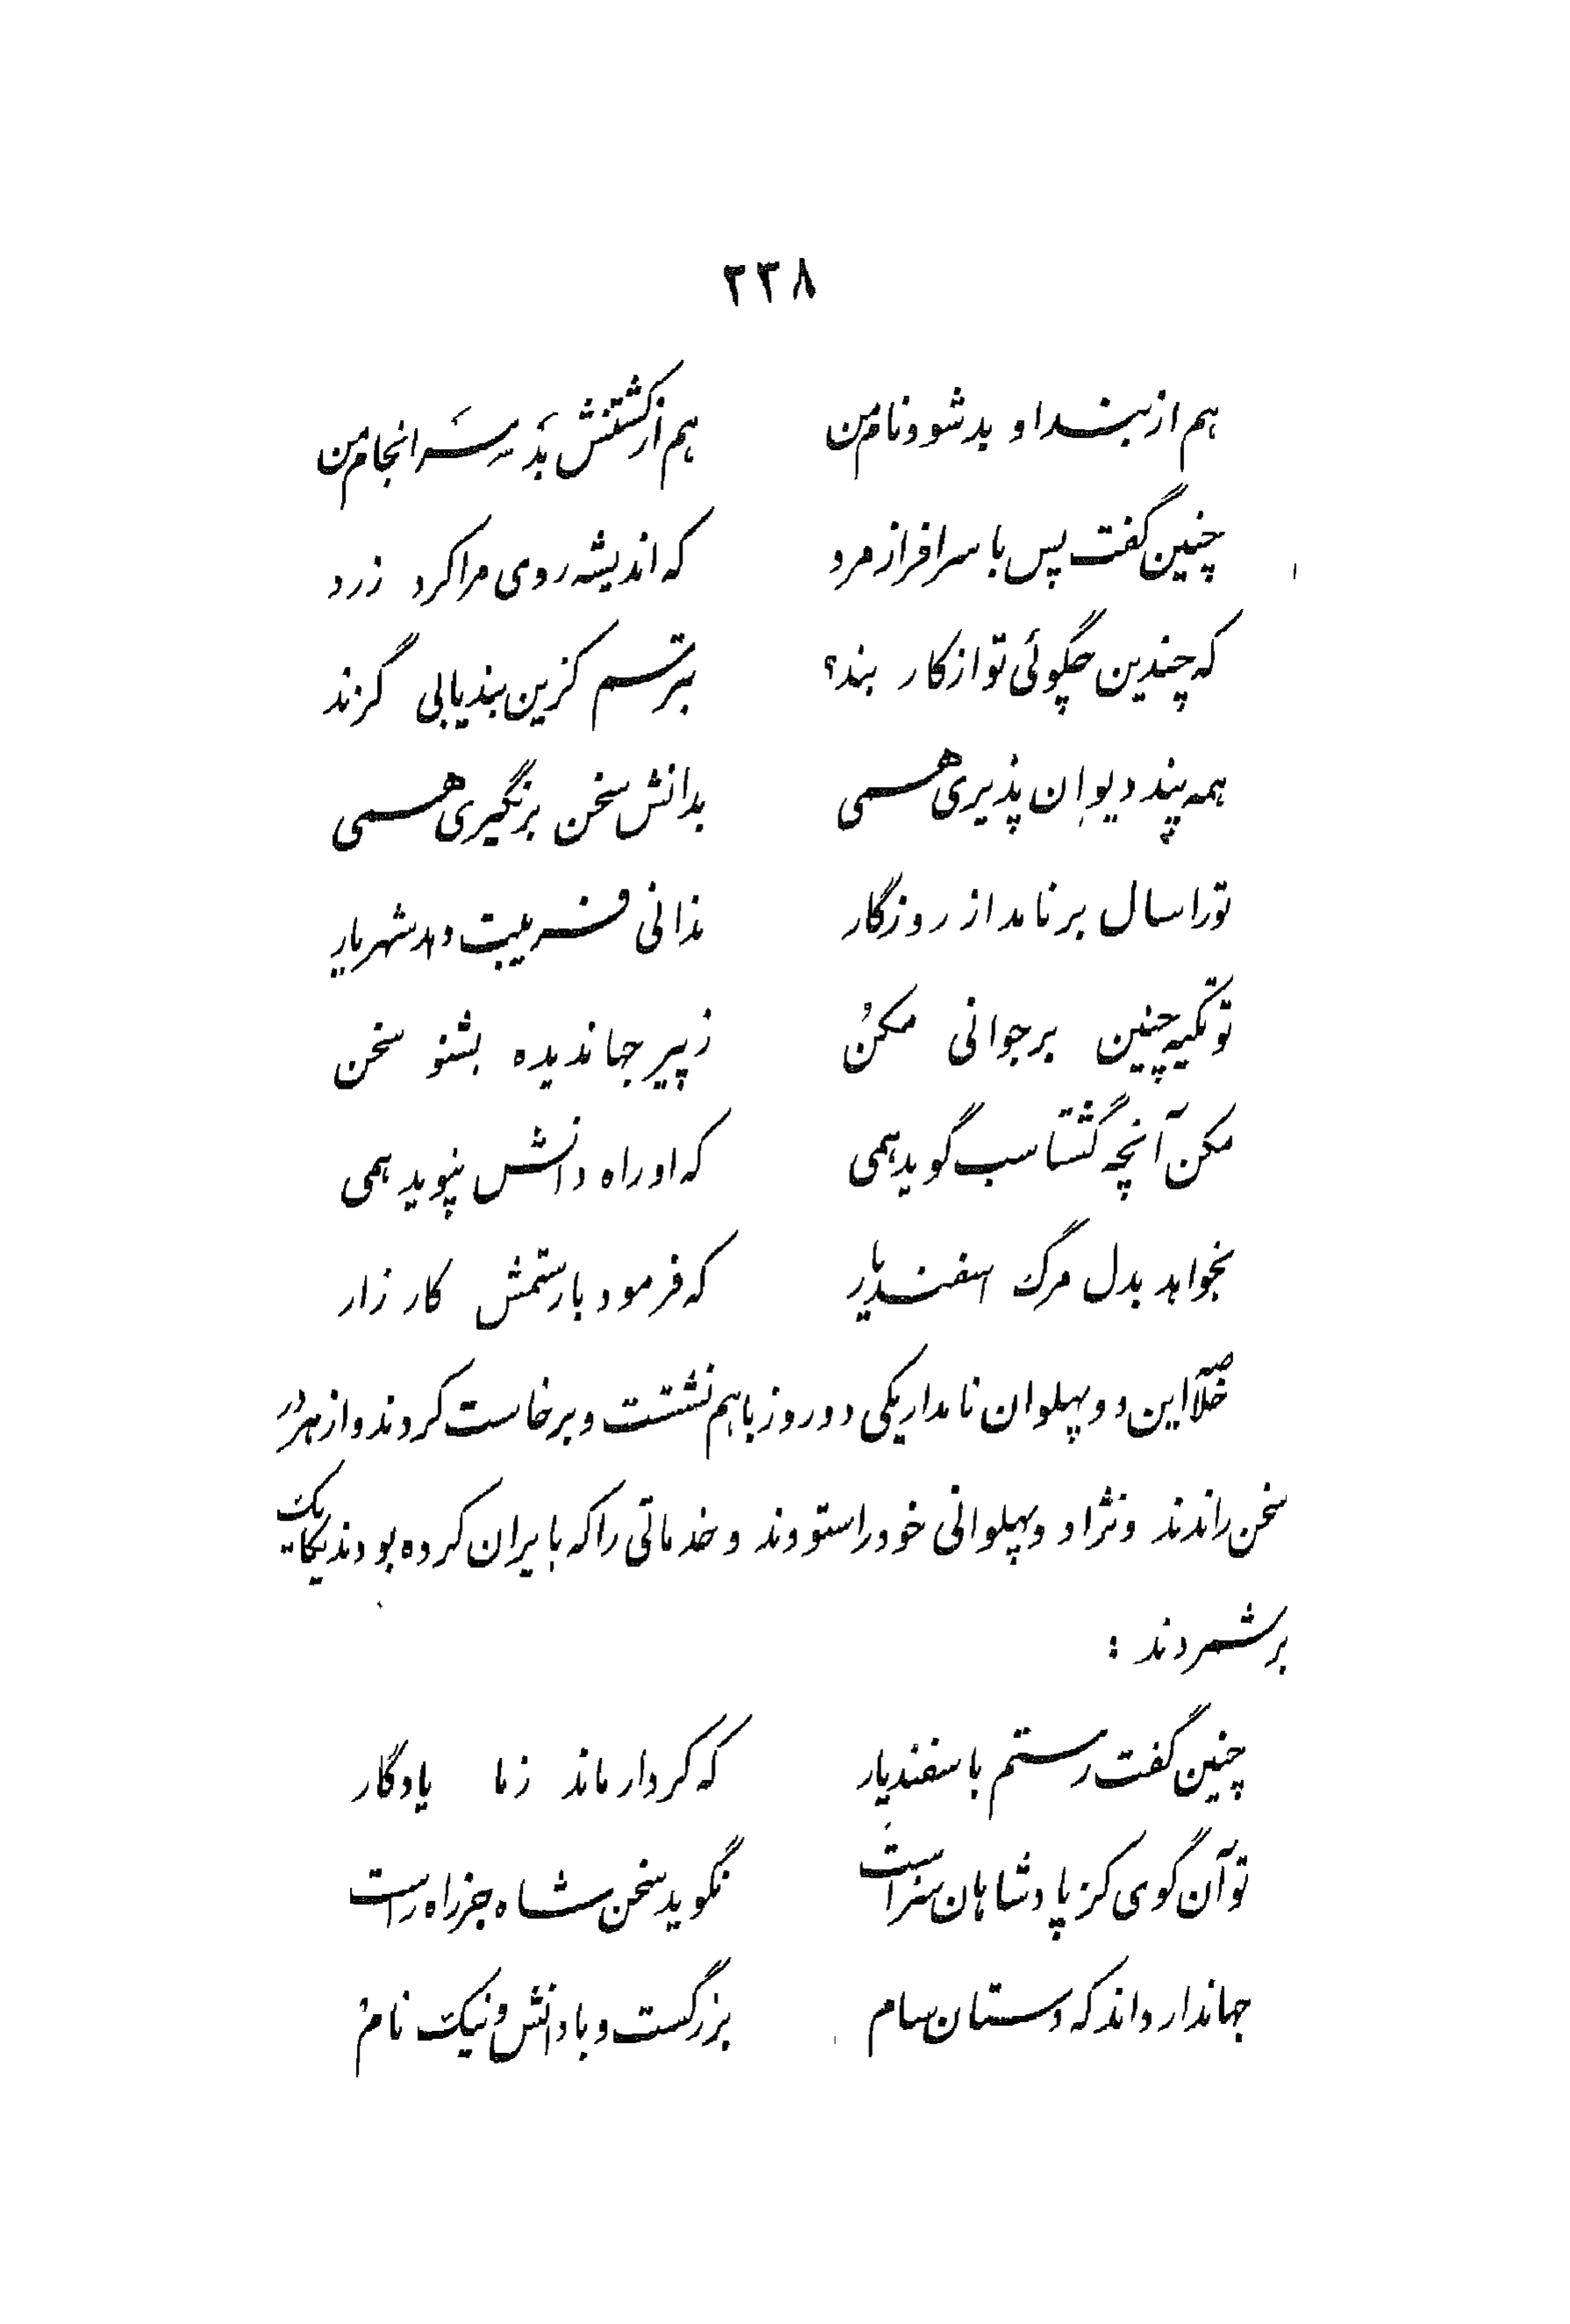 ۲۳۸
هم از بند او بد شود نام من هم از کشتنش بَد سَر انجام من
چنین گفت پس با سرافراز مرد که اندیشه روی مرا کرد زرد
که چندین چگوئی تو از کار بند؟ بترسم کزین بند یابی گزند
همه پند دیوان پذیری همی بدانش سخن برنگیری همی
تورا سال برنامد از روزگار ندانی فریب بد شهریار
تو تکیه چنین بر جوانی مکنُ ز پیر جهاندیده بشنو سخن
مکن آنچه گشتاسب گوید همی که او راه دانش نپوید همی
بخواهد بدل مرگ اسفندیار که فرمود با رستمش کارزار
خلاصه این دو پهلوان نامدار یکی دو روز باهم نشست و برخاست کردند و از هر در
سخن راندند و نژاد و پهلوانی خود را ستودند و خدماتی را که بایران کرده بودند یکایک
برشمردند :
چنین گفت رستم باسفندیار که کردار ماند ز ما یادگار
تو آن گوی کز پادشاهان سزاست نگوید سخن شاه جز راه راست
جهاندار داند که دستان سام بزرگست و با دانش و نیک نام